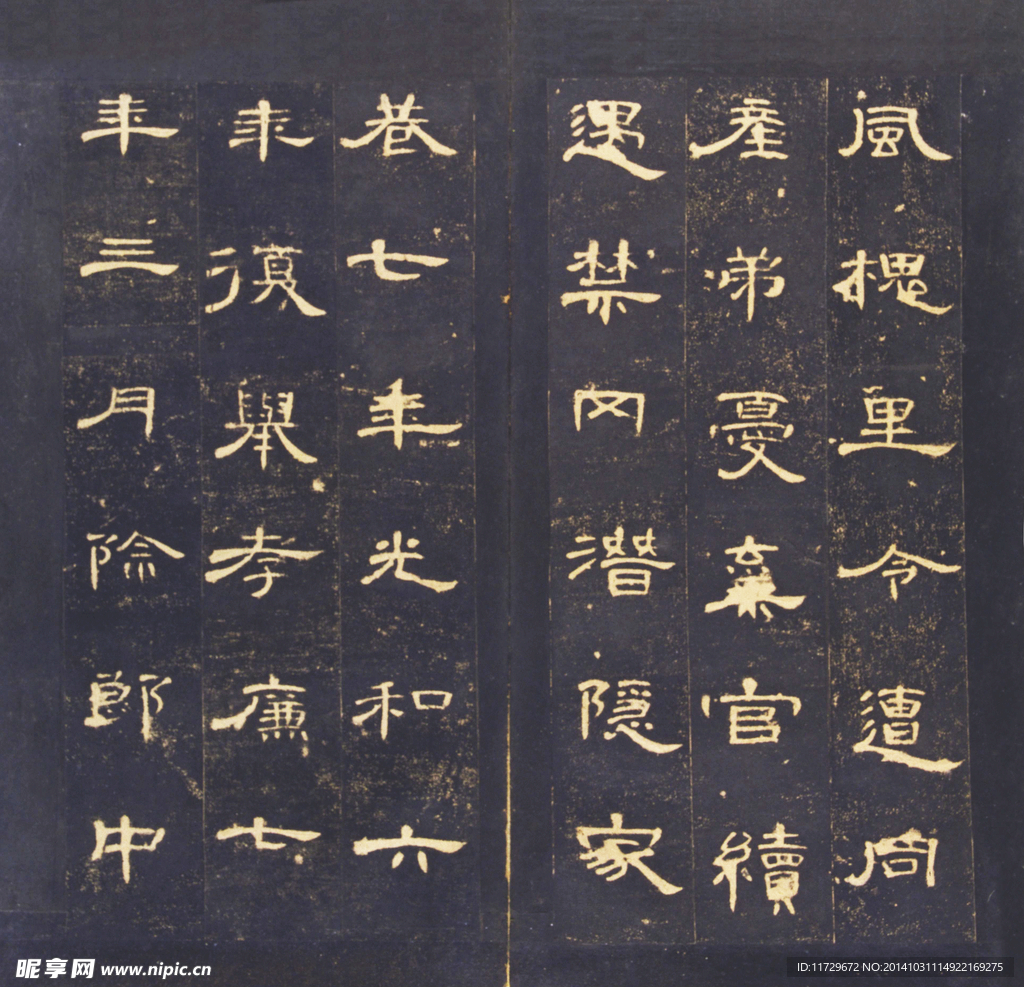 風槐里令遭同
産弟憂棄官續
遇禁网潛隱家
巷七年光和六
年復舉孝廉七
年三月除郎中
昵享网 www.nipic.cn
ID:11729672 NO:20141031114922169275